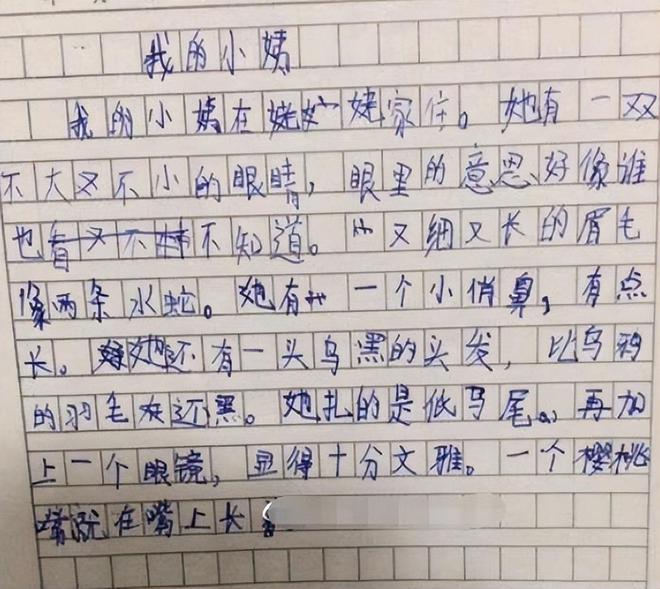 我的小姨
我的小姨在姥姥家住。她有一双
不大又不小的眼睛，眼里的意思好像谁
也不知道。又细又长的眉毛
像两条水蛇。她有一个小俏鼻，有点
长。她还有一头乌黑的头发，比乌鸦
的羽毛还黑。她扎的是低马尾。再加
上一个眼镜，显得十分文雅。一个樱桃
嘴就在嘴上长